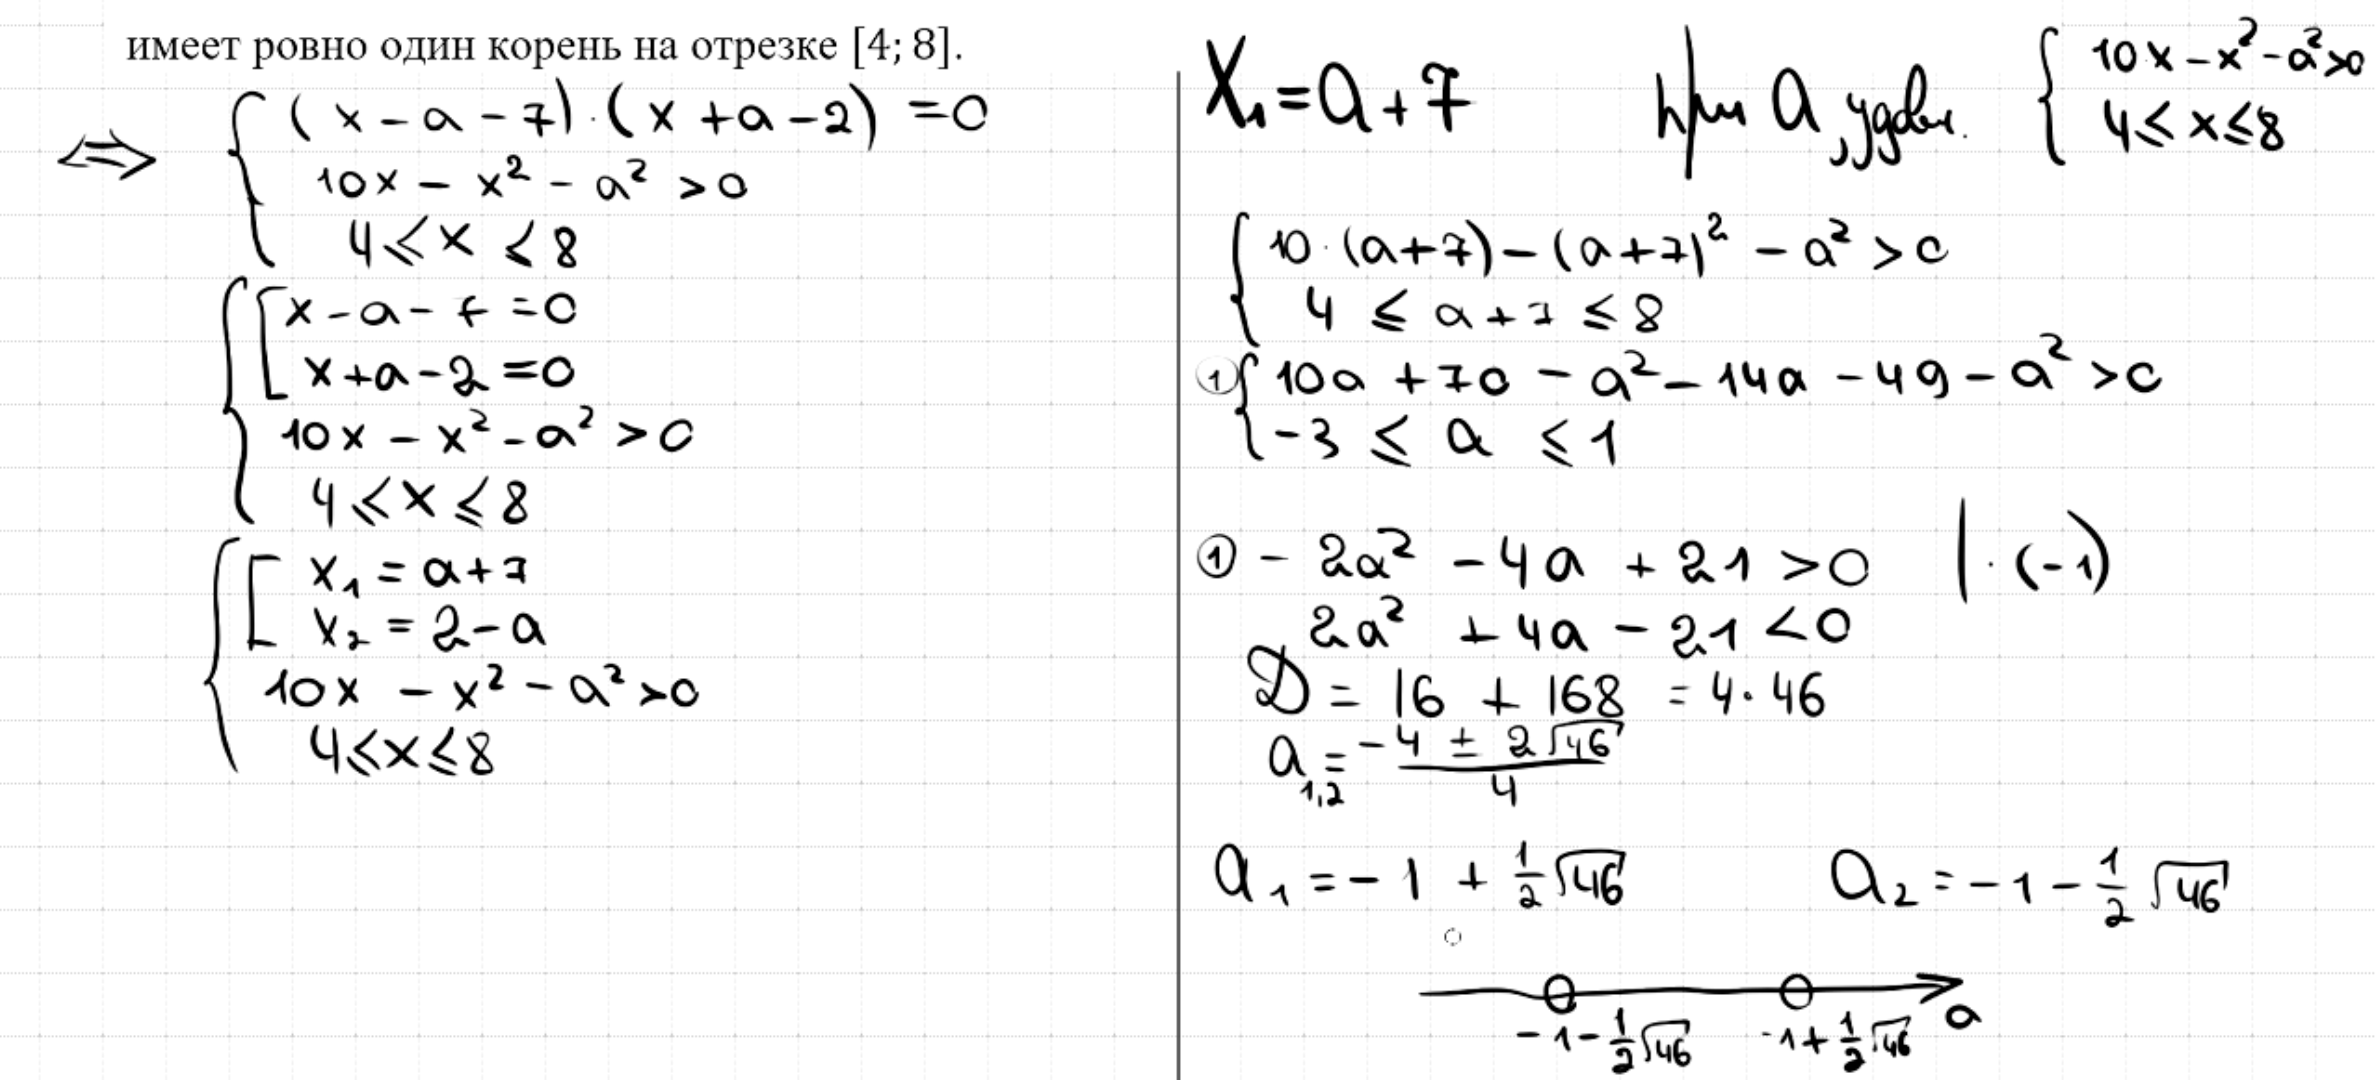 имеет ровно один корень на отрезке [4; 8].
⟺ { (x - a - 7) · (x + a - 2) = 0
10x - x² - a² > 0
4 ⩽ x ⩽ 8
{ [ x - a - 7 = 0
x + a - 2 = 0
10x - x² - a² > 0
4 ⩽ x ⩽ 8
{ [ x₁ = a + 7
x₂ = 2 - a
10x - x² - a² > 0
4 ⩽ x ⩽ 8
X₁ = a + 7 при a, удовл. { 10x - x² - a² > 0
4 ⩽ x ⩽ 8
{ 10 · (a + 7) - (a + 7)² - a² > 0
4 ⩽ a + 7 ⩽ 8
① { 10a + 70 - a² - 14a - 49 - a² > 0
-3 ⩽ a ⩽ 1
① - 2a² - 4a + 21 > 0 | · (-1)
2a² + 4a - 21 < 0
D = 16 + 168 = 4 · 46
a₁,₂ = (-4 ± 2√46) / 4
a₁ = -1 + ½√46 a₂ = -1 - ½√46
-1 - ½√46 -1 + ½√46 a